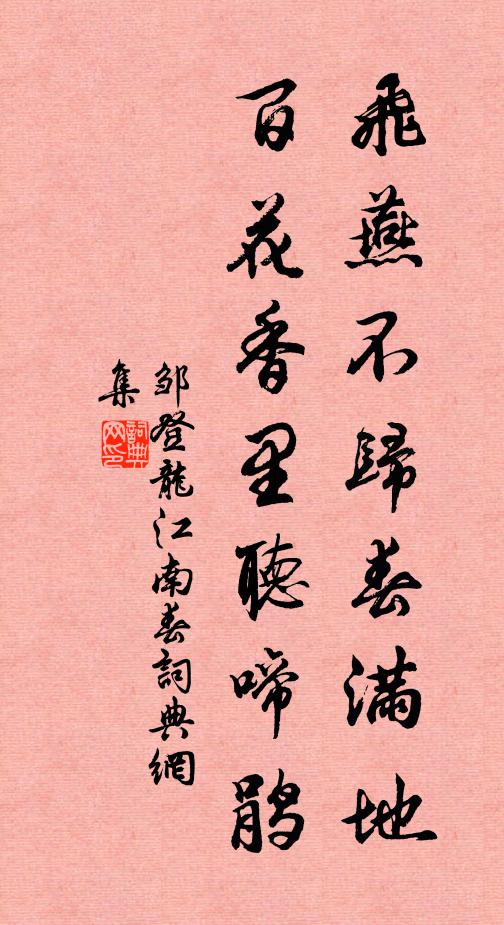 飛燕不歸春滿地
百花香里聽啼鵑
鄒登龍江南春詞典網
集
詞典
网印